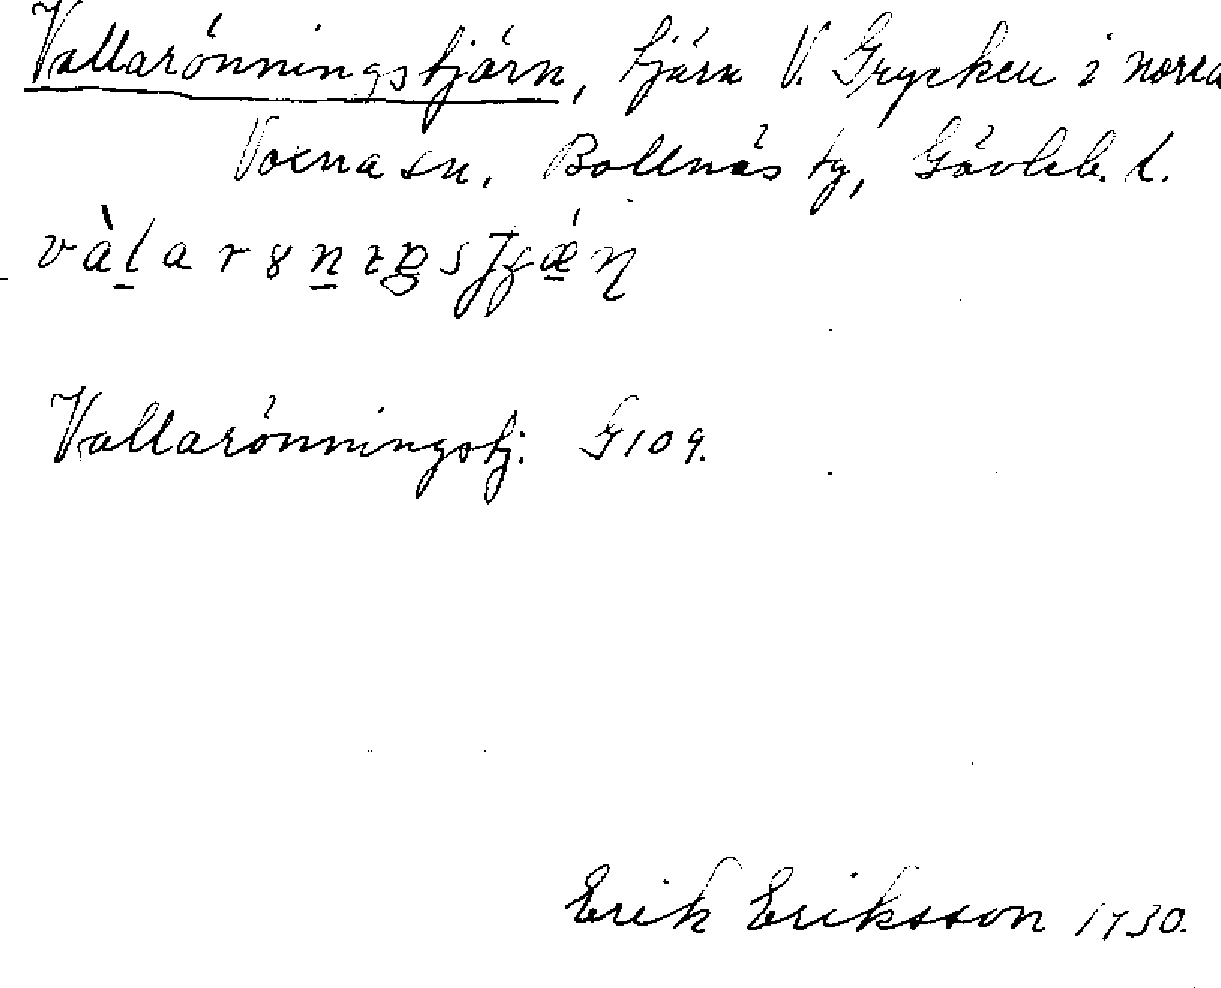 Vallarönningstjärn, tjärn V. Grycken i norra
Voxna sn. Bollnäs tg, Gävleb. l.
Vallarönningstj. G109.
Erik Eriksson 1930.